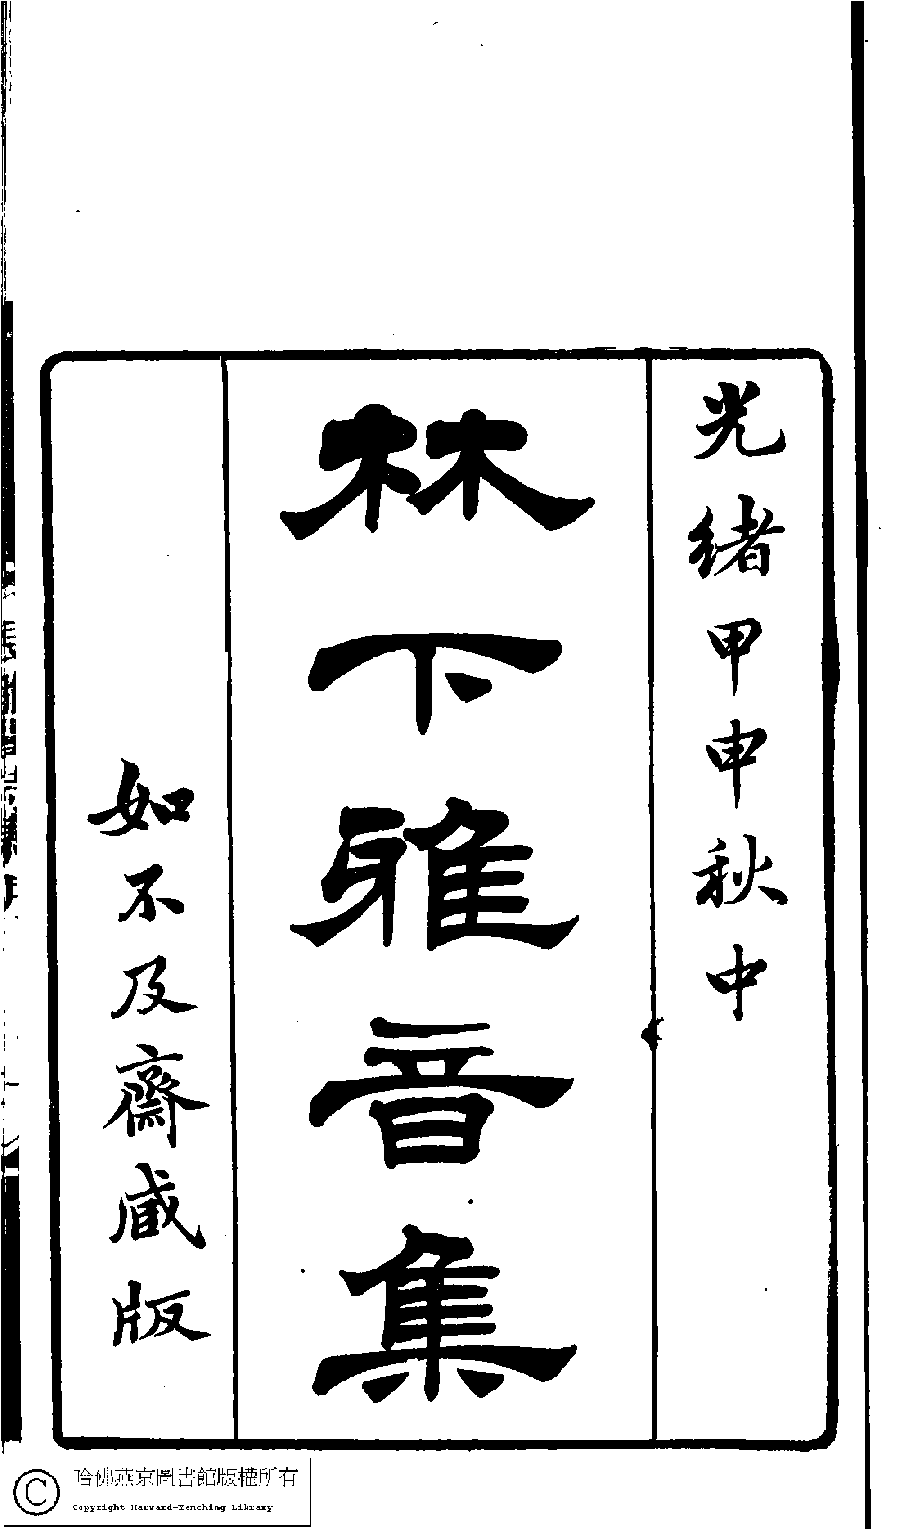 光緒甲申秋中
林下雅音集
如不及齋臧版
哈佛燕京圖書館版權所有
Copyright Harvard-Yenching Library